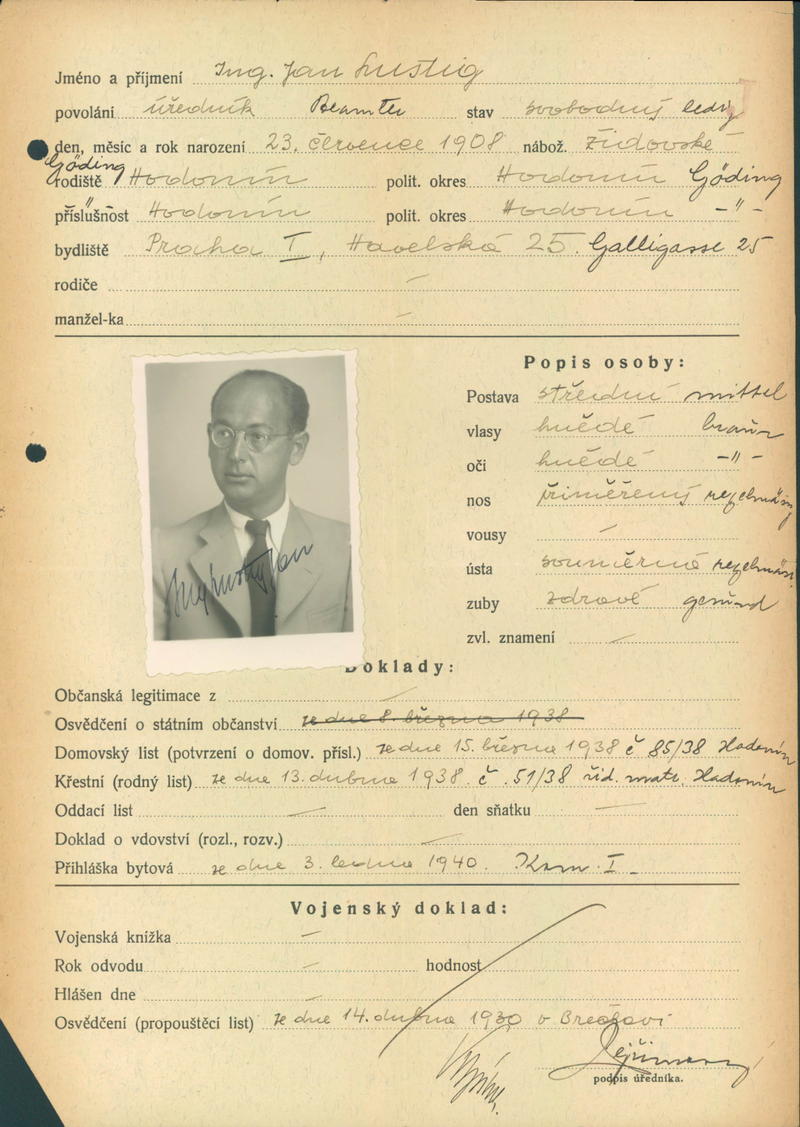 Jméno a příjmení Ing. Jan Lustig
povolání úředník Beamter stav svobodný ledig
den, měsíc a rok narození 23. července 1908 nábož. židovské
Göding
rodiště Hodonín polit. okres Hodonín Göding
příslušnost Hodonín polit. okres Hodonín -"-
bydliště Praha I, Havelská 25. Galligasse 25
rodiče —
manžel-ka —
Popis osoby:
Postava střední mittel
vlasy hnědé braun
oči hnědé -"-
nos přiměřený regelmäsig
vousy —
ústa souměrné regelmäsi
zuby zdravé gesund
zvl. znamení —
Ing Lustig Jan
Doklady:
Občanská legitimace z —
Osvědčení o státním občanství ze dne 8. března 1938
Domovský list (potvrzení o domov. přísl.) ze dne 15. března 1938 č 85/38 Hodonín
Křestní (rodný list) ze dne 13. dubna 1938. č. 51/38 žid. matr. Hodonín
Oddací list — den sňatku —
Doklad o vdovství (rozl., rozv.) —
Přihláška bytová ze dne 3. ledna 1940. Kom. I
Vojenský doklad:
Vojenská knížka —
Rok odvodu — hodnost
Hlášen dne —
Osvědčení (propouštěcí list) ze dne 14. dubna 1930 v
podpis úředníka.